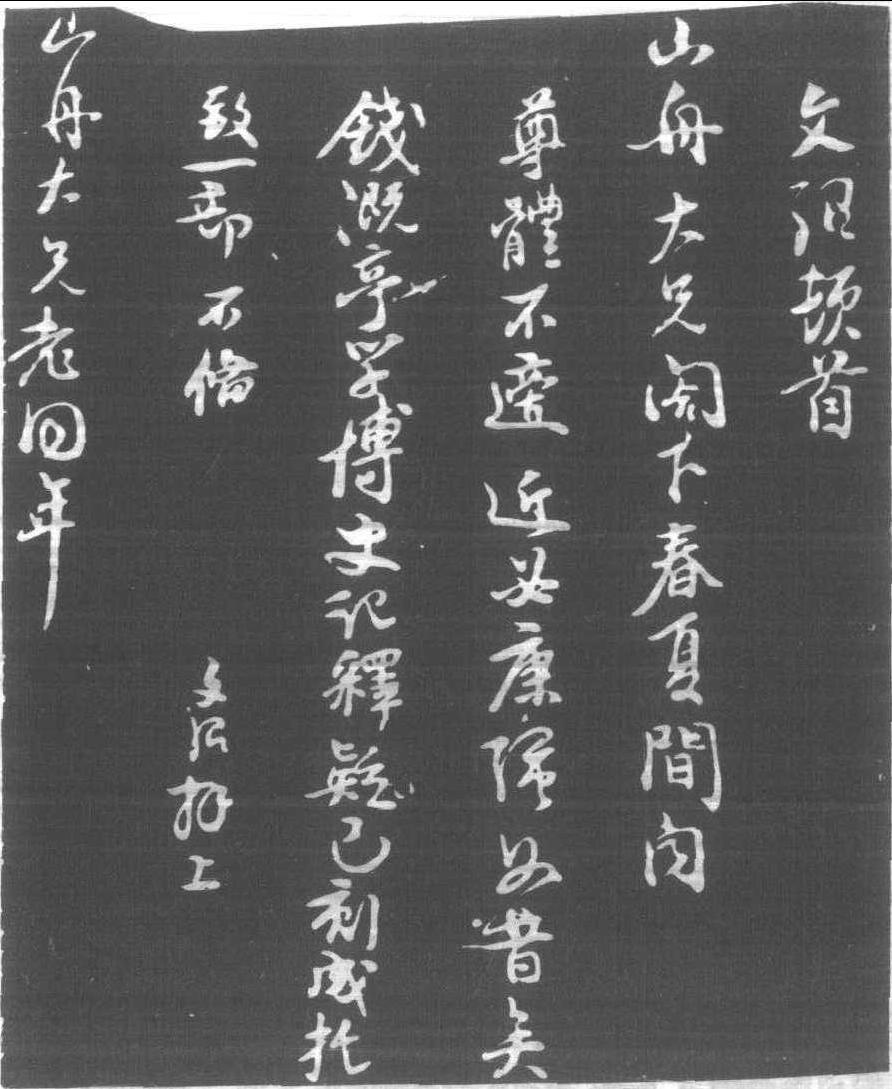 文弨頓首
山舟大兄閣下春夏間聞
尊體不適近必康強如昔矣
錢溉亭学博史記釋疑已刻成托
致一部不備
文弨拜上
山舟大兄老同年